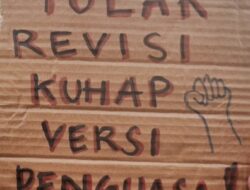 TOLAK
REVISI
KUHAP
VERSI
PENGUASA!